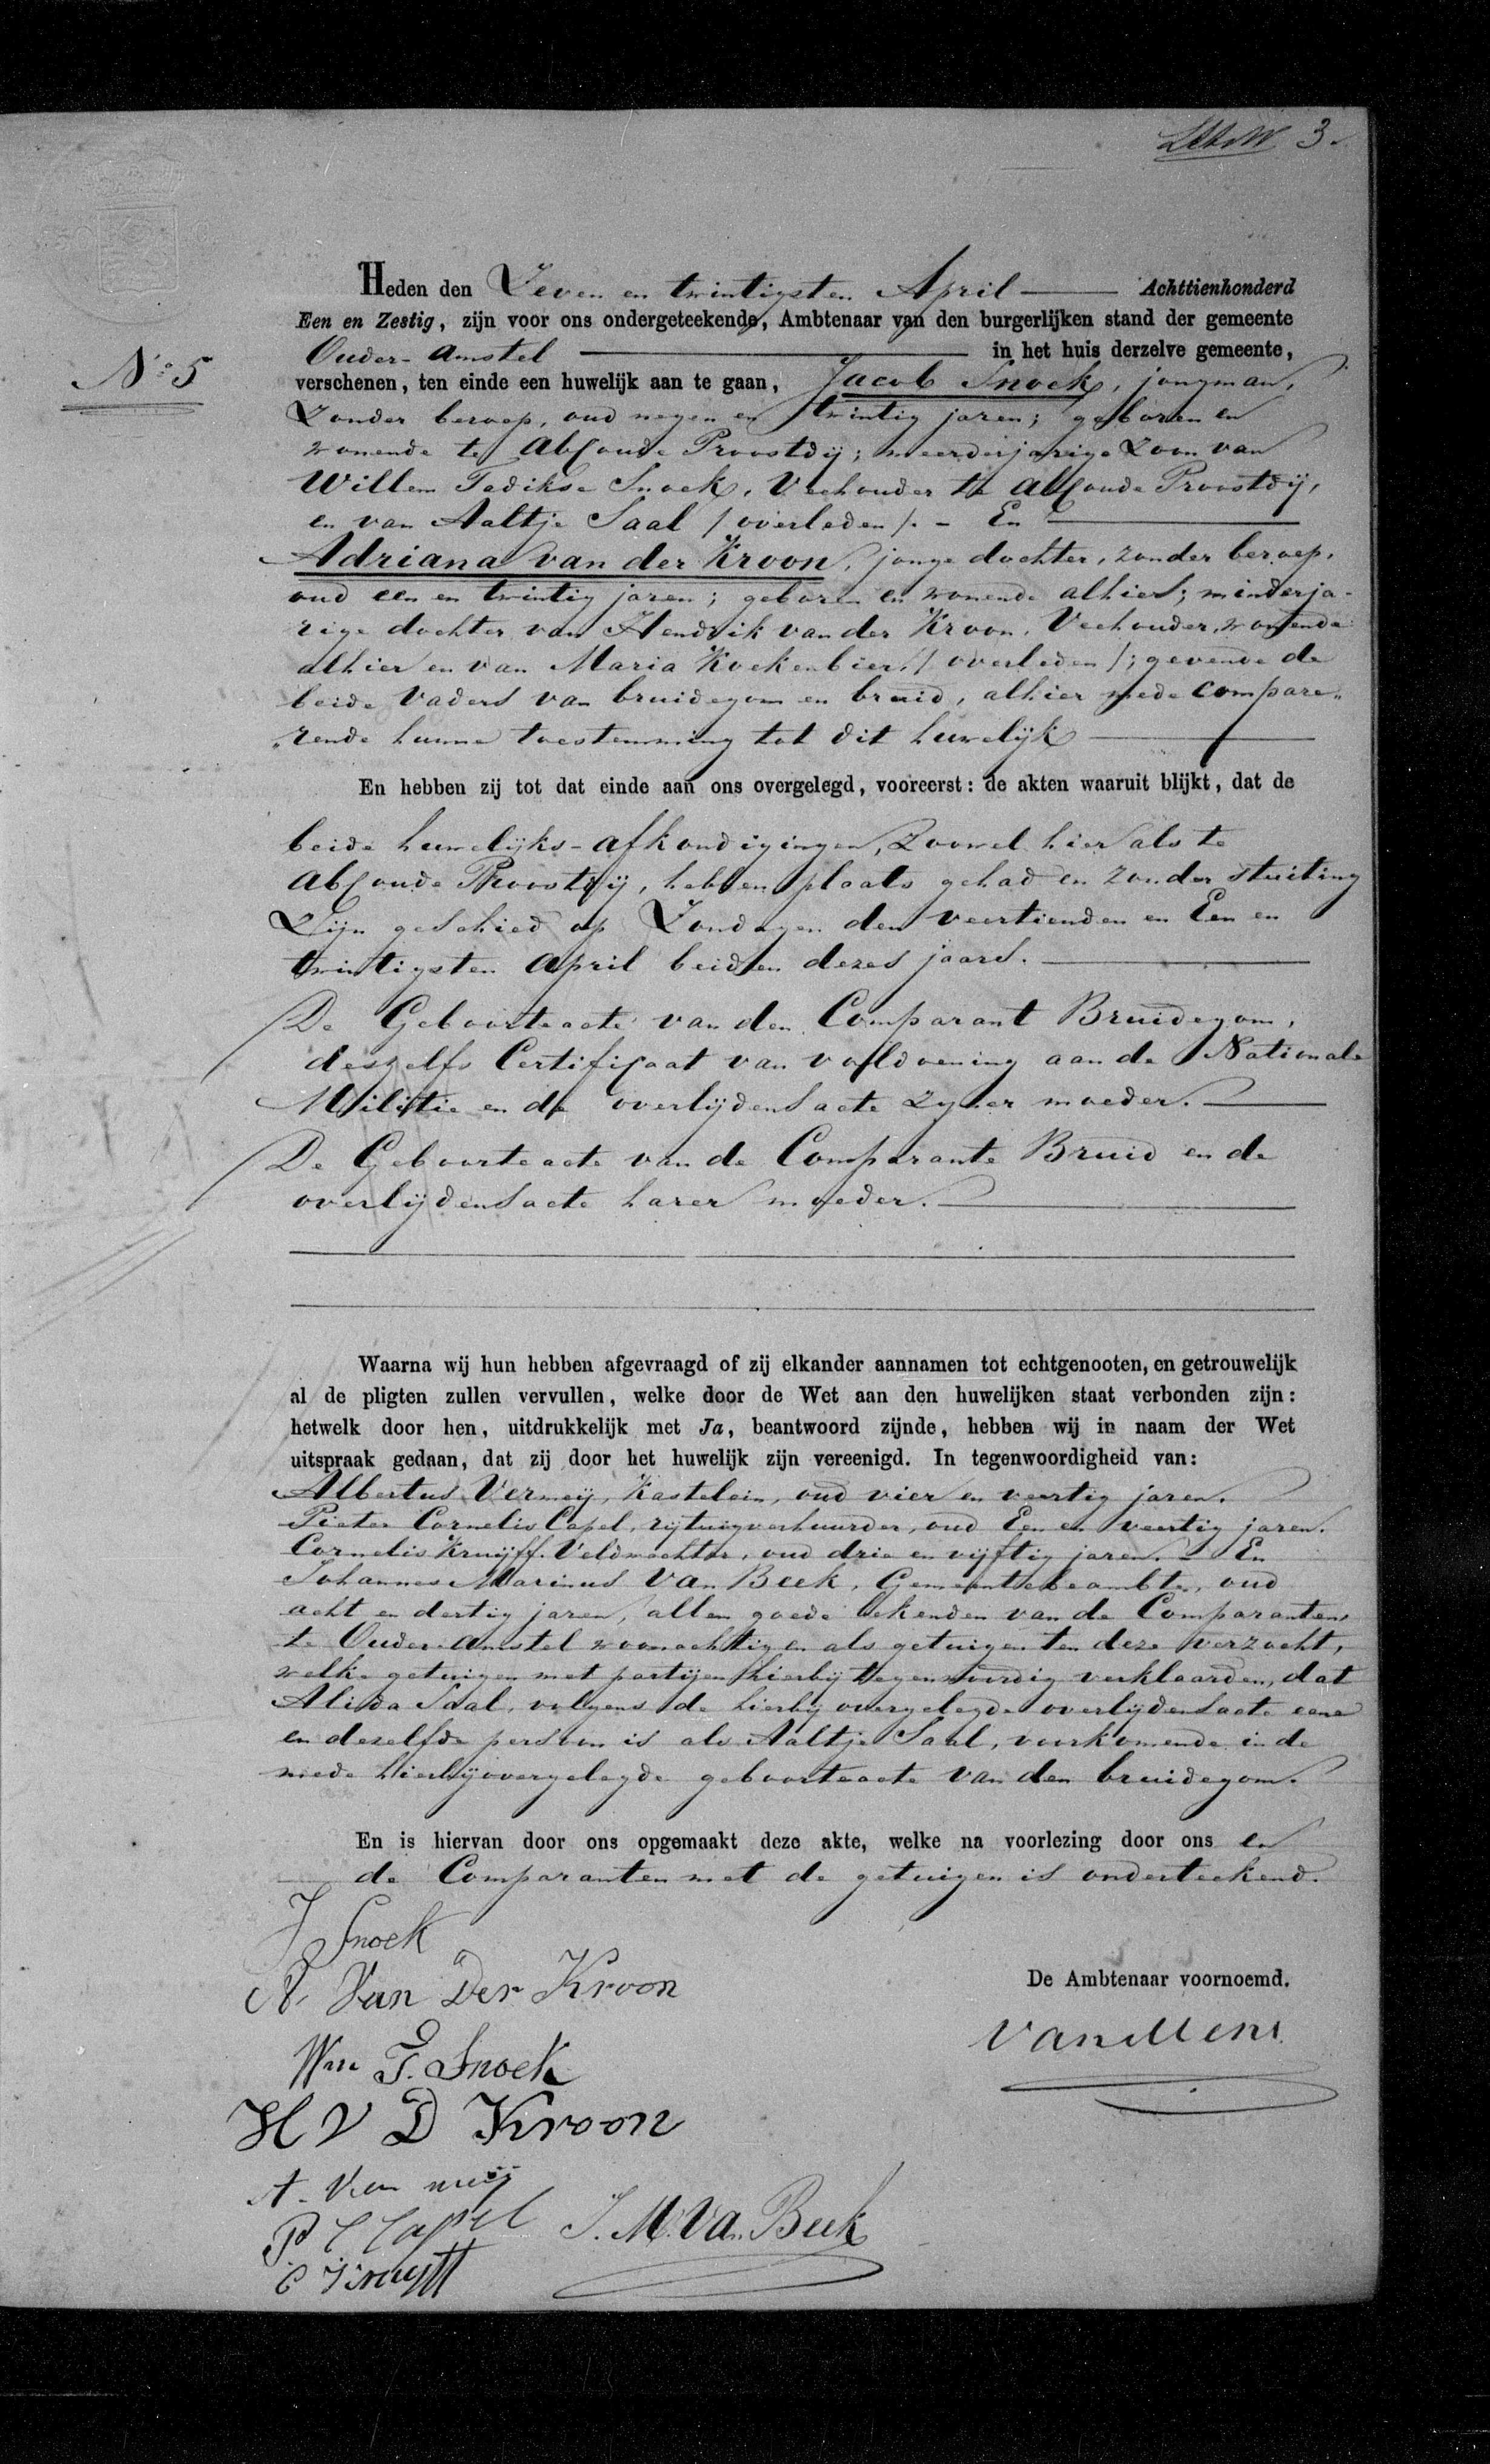 3.
Heden den Zeven en twintigsten April Achttienhonderd
Een en Zestig, zijn voor ons ondergeteekende, Ambtenaar van den burgerlijken stand der gemeente
Ouder-Amstel in het huis derzelve gemeente,
N:o 5
verschenen, ten einde een huwelijk aan te gaan, Jacob Snoek, jongman,
Zonder beroep, oud negen en twintig jaren; geboren en
wonende te Abcoude Proostdij; meerderjarige Zoon van
Willem Tedikse Snoek, Veehouder te Abcoude Proostdij,
en van Aaltje Saal /overleden/. - En
Adriana van der Kroon, jonge dochter, zonder beroep,
oud een en twintig jaren; geboren en wonende alhier; minderja-
rige dochter van Hendrik van der Kroon, Veehouder, wonende
alhier en van Maria Koekenbier /overleden/; gevende de
beide Vaders van bruidegom en bruid, alhier mede compare„
„rende hunne toestemming tot dit huwelijk
En hebben zij tot dat einde aan ons overgelegd, vooreerst: de akten waaruit blijkt, dat de
beide huwelijks-afkondigingen, Zoowel hier als te
Abcoude Proostdij, hebben plaats gehad en zonder stuiting
Zijn geschied op Zondagen den veertienden en Een en
twintigsten April beiden dezes jaars.
De Geboorteacte van den Comparant Bruidegom,
deszelfs Certificaat van voldoening aan de Nationale
Militie en de overlijdensacte zyner moeder.
De Geboorteacte van de Comparante Bruid en de
overlijdensacte harer moeder.
Waarna wij hun hebben afgevraagd of zij elkander aannamen tot echtgenooten, en getrouwelijk
al de pligten zullen vervullen, welke door de Wet aan den huwelijken staat verbonden zijn:
hetwelk door hen, uitdrukkelijk met Ja, beantwoord zijnde, hebben wij in naam der Wet
uitspraak gedaan, dat zij door het huwelijk zijn vereenigd. In tegenwoordigheid van:
Albertus Vermeij, Kastelein, oud vier en veertig jaren.
Pieter Cornelis Capel, rijtuigverhuurder, oud Een en veertig jaren.
Cornelis Kruijff, Veldwachter, oud drie en vijftig jaren. - En
Johannes Marinus Van Beek, Gemeentebeambte, oud
acht en dertig jaren, allen goede bekenden van de Comparanten
te Ouder-Amstel woonachtig en als getuigen ten deze verzocht,
welke getuigen met partijen hierbij tegenwoordig verklaarden, dat
Alida Saal, volgens de hierbij overgelegde overlijdensacte eene
en dezelfde persoon is als Aaltje Saal, voorkomende in de
mede hierbijovergelegde geboorteacte van den bruidegom.
En is hiervan door ons opgemaakt deze akte, welke na voorlezing door ons en
de Comparanten met de getuigen is onderteekend.
J Snoek
A. Van Der Kroon
De Ambtenaar voornoemd.
Wm T. Snoek
H V D Kroon
A. Vermeij
P C Capel
J. M. Van Beek
C Kruijff